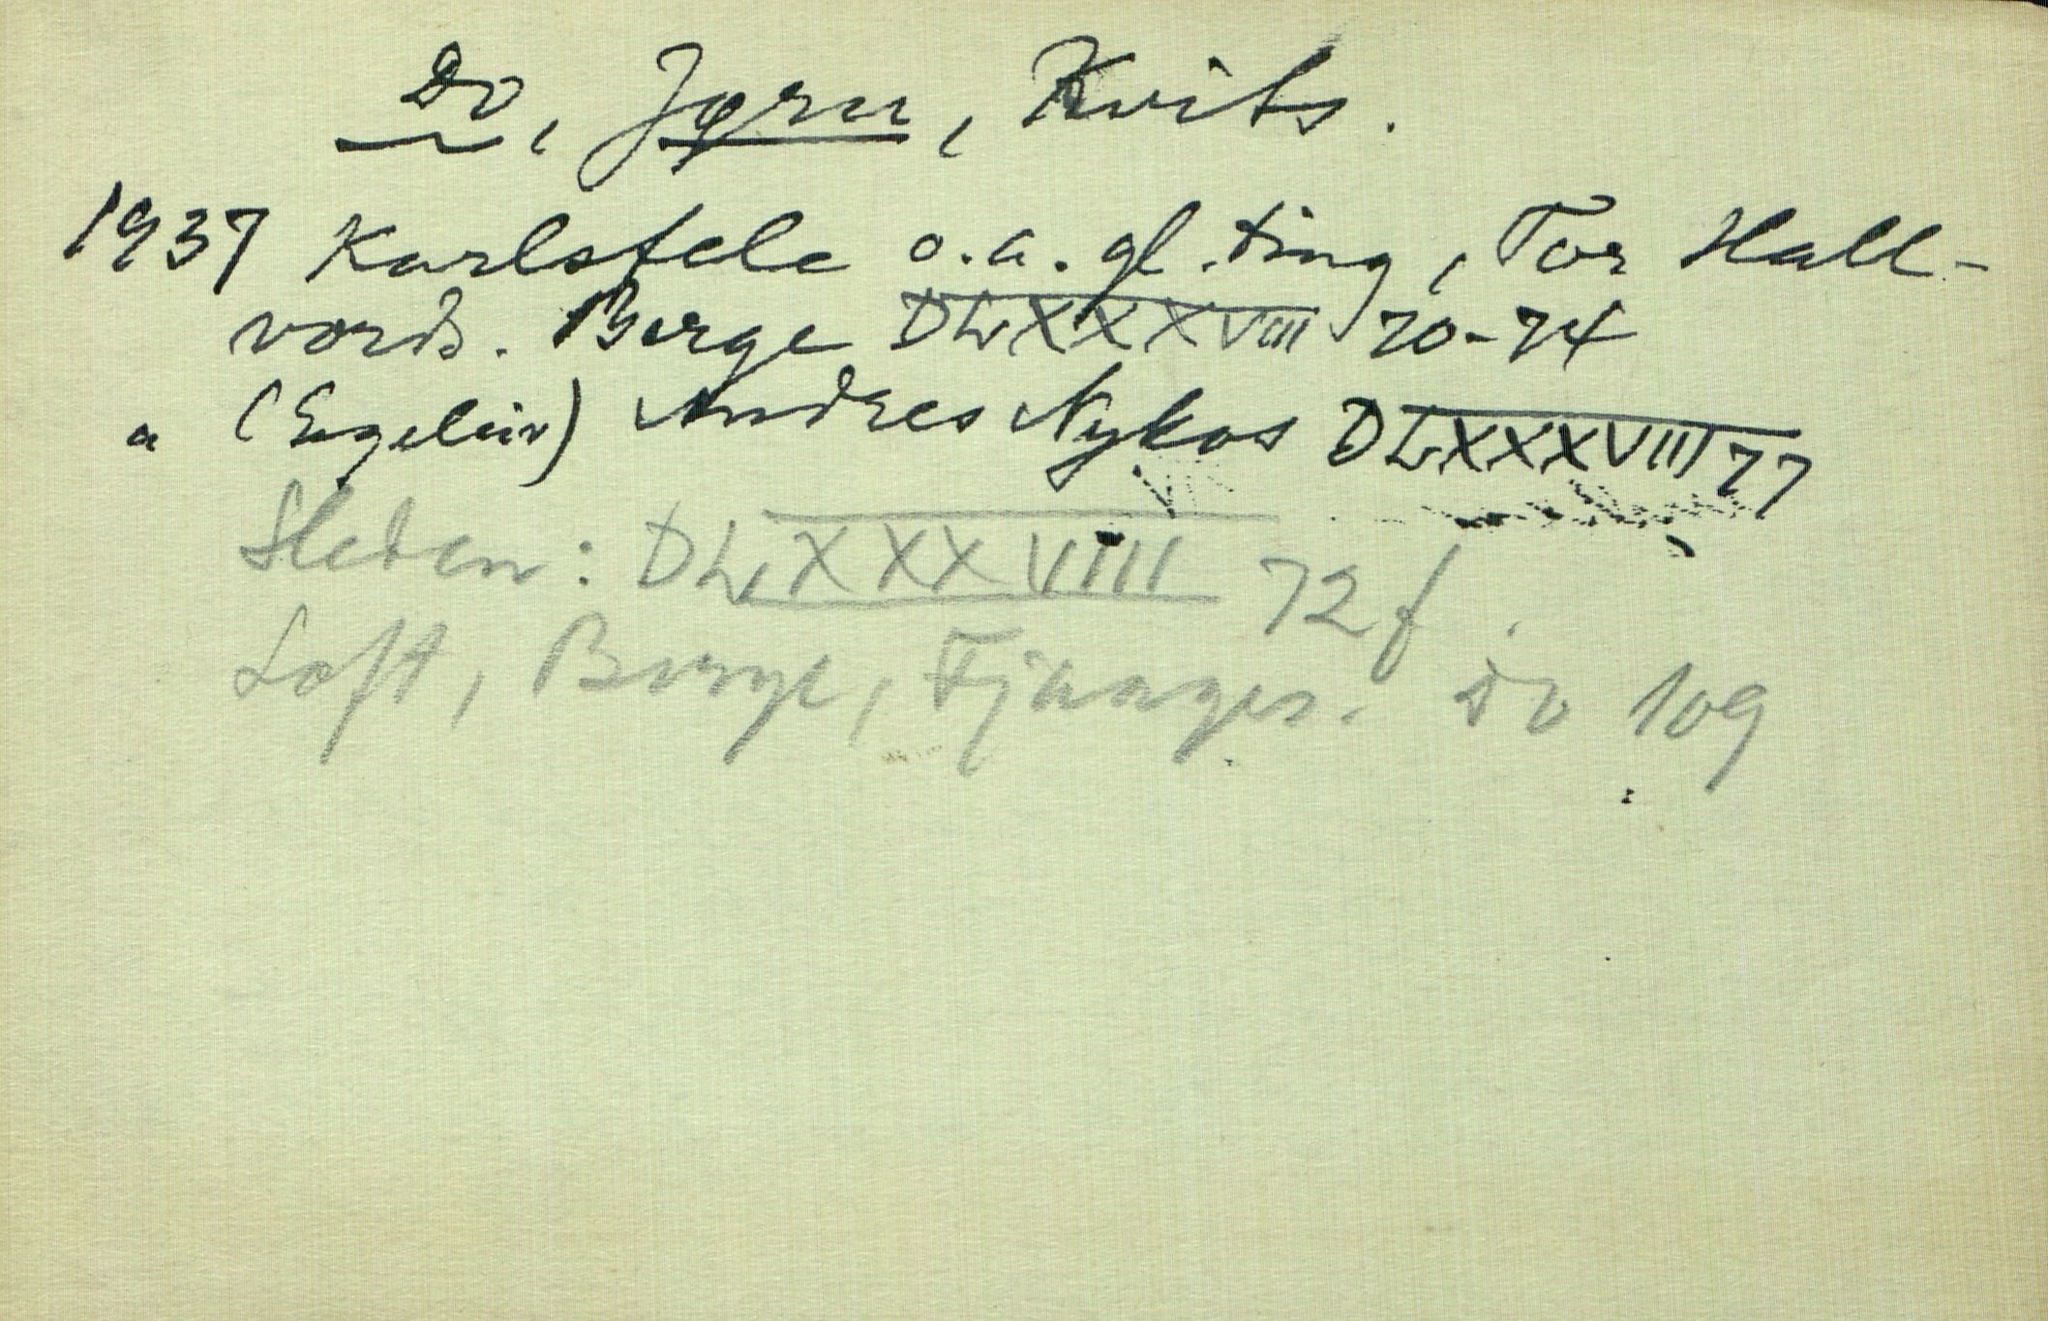 Do, Jørn, Kvits.
1937 Karlsfele o.a. gl. ting, Tor Hall-
vords. Berge DLXXXVIII 70-74
" (Egeleiv) Andres Nykos DLXXXVIII 77
Sleden: DLXXXVIII 72 f.
Loft, Berge, Fjånges. Do 109